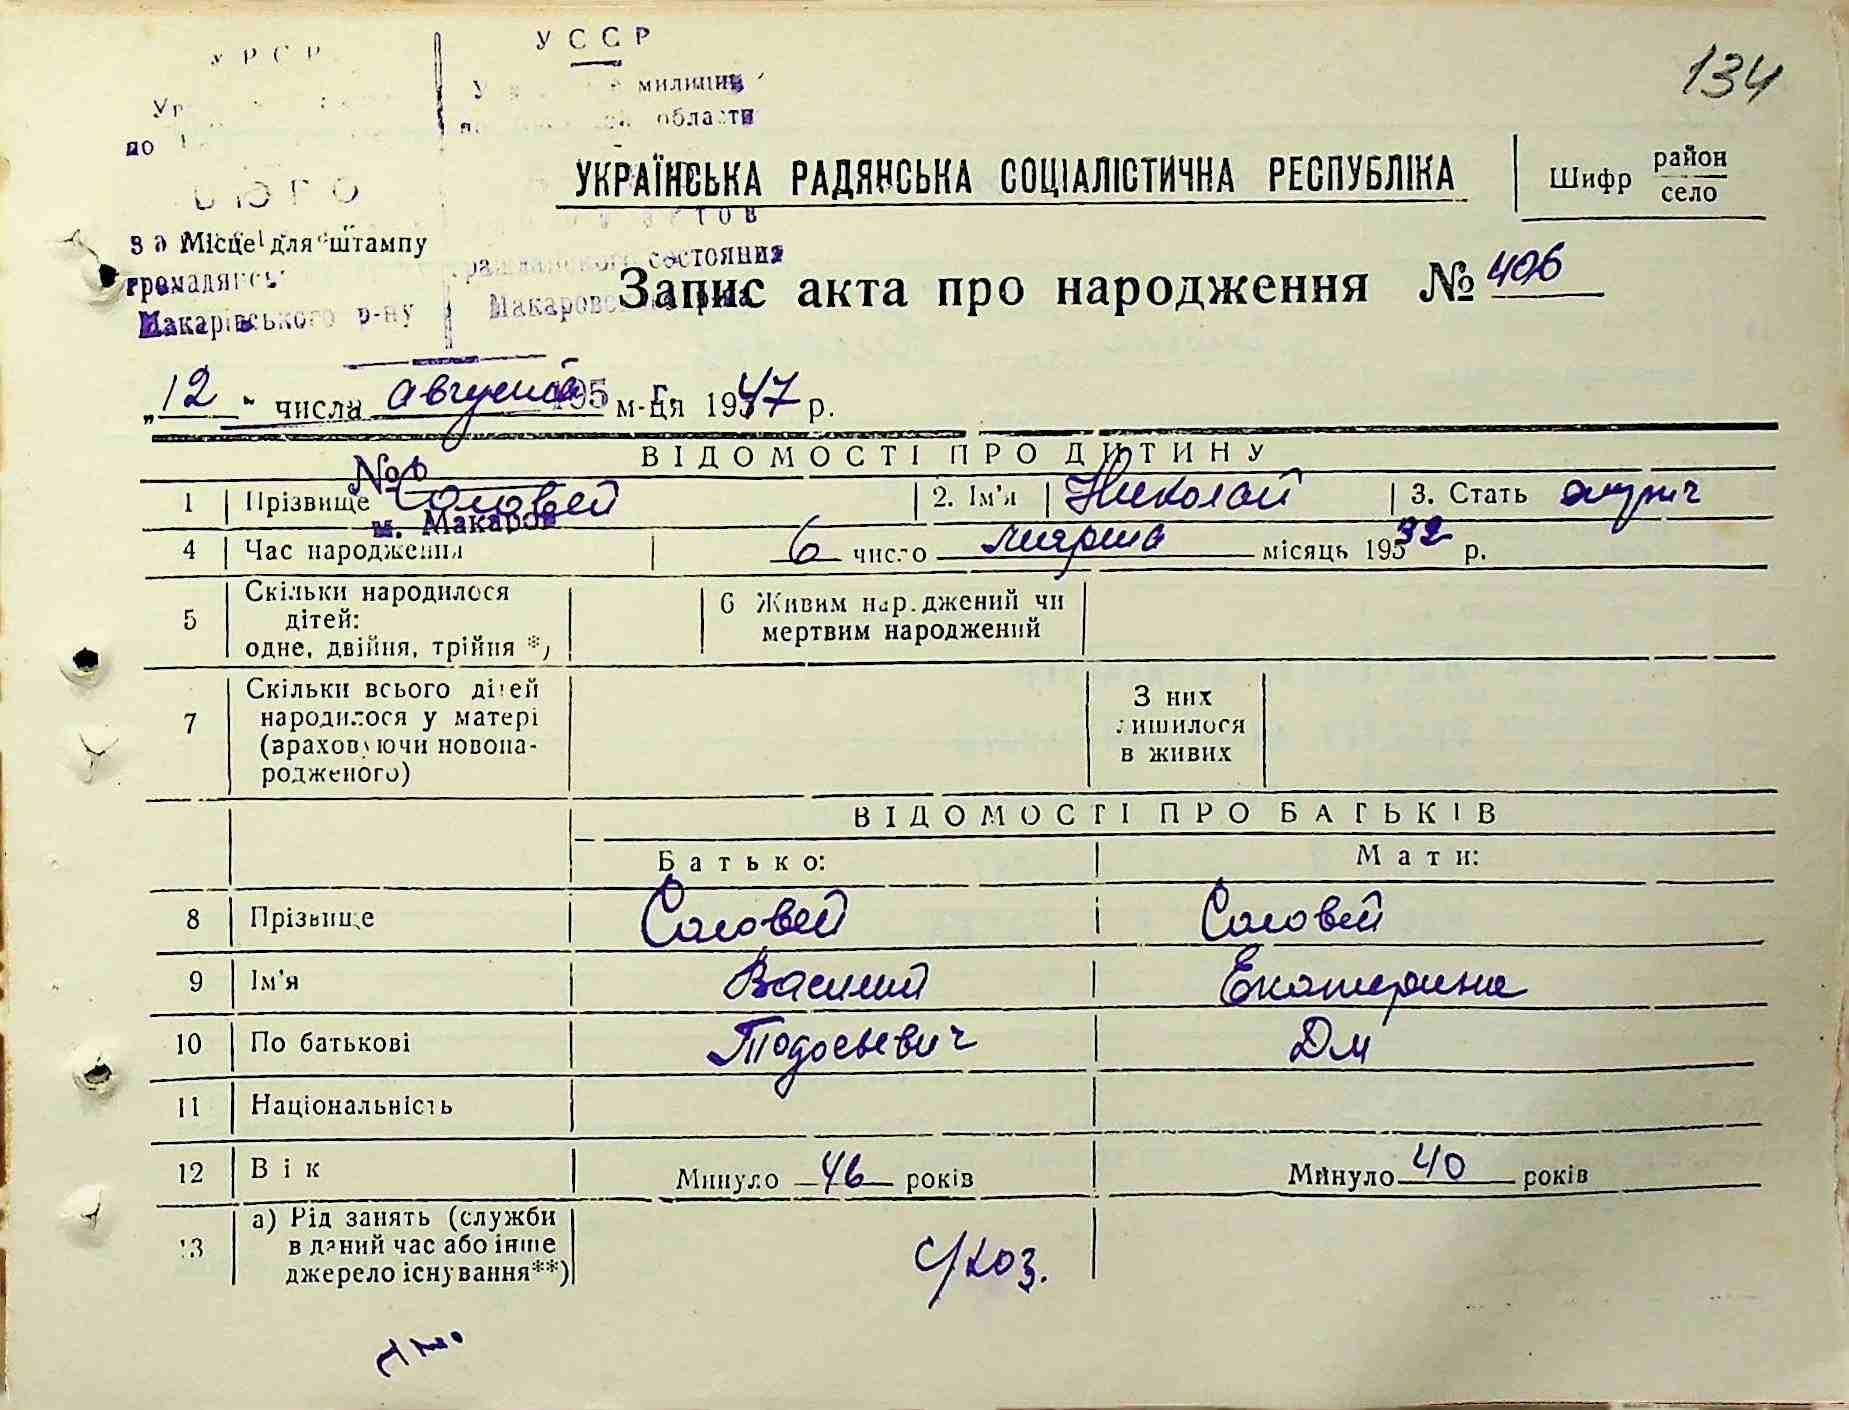 У Р С Р
У С С Р
милиции
по
области
134
УКРАЇНСЬКА РАДЯНСЬКА СОЦІАЛІСТИЧНА РЕСПУБЛІКА
Шифр район
село
Місце для штампу
состояния
Макарівського р-ну
Запис акта про народження № 406
„12" числа августа 195 м-ця 1947 р.
ВІДОМОСТІ ПРО ДИТИНУ
№
1 Прізвище Соловей 2. Ім'я Николай 3. Стать мужч
м. Макаров
4 Час народження 6 число марта місяць 1932 р.
5 Скільки народилося дітей: одне, двійня, трійня *) 6 Живим народжений чи мертвим народжений
7 Скільки всього дітей народилося у матері (враховуючи новонародженого) З них лишилося в живих
ВІДОМОСТІ ПРО БАТЬКІВ
Батько: Мати:
8 Прізвище Соловей Соловей
9 Ім'я Василий Екатерина
10 По батькові Тодосьевич Дм
11 Національність
12 Вік Минуло 46 років Минуло 40 років
13 а) Рід занять (служби
в даний час або інше
джерело існування**)
с/хоз.